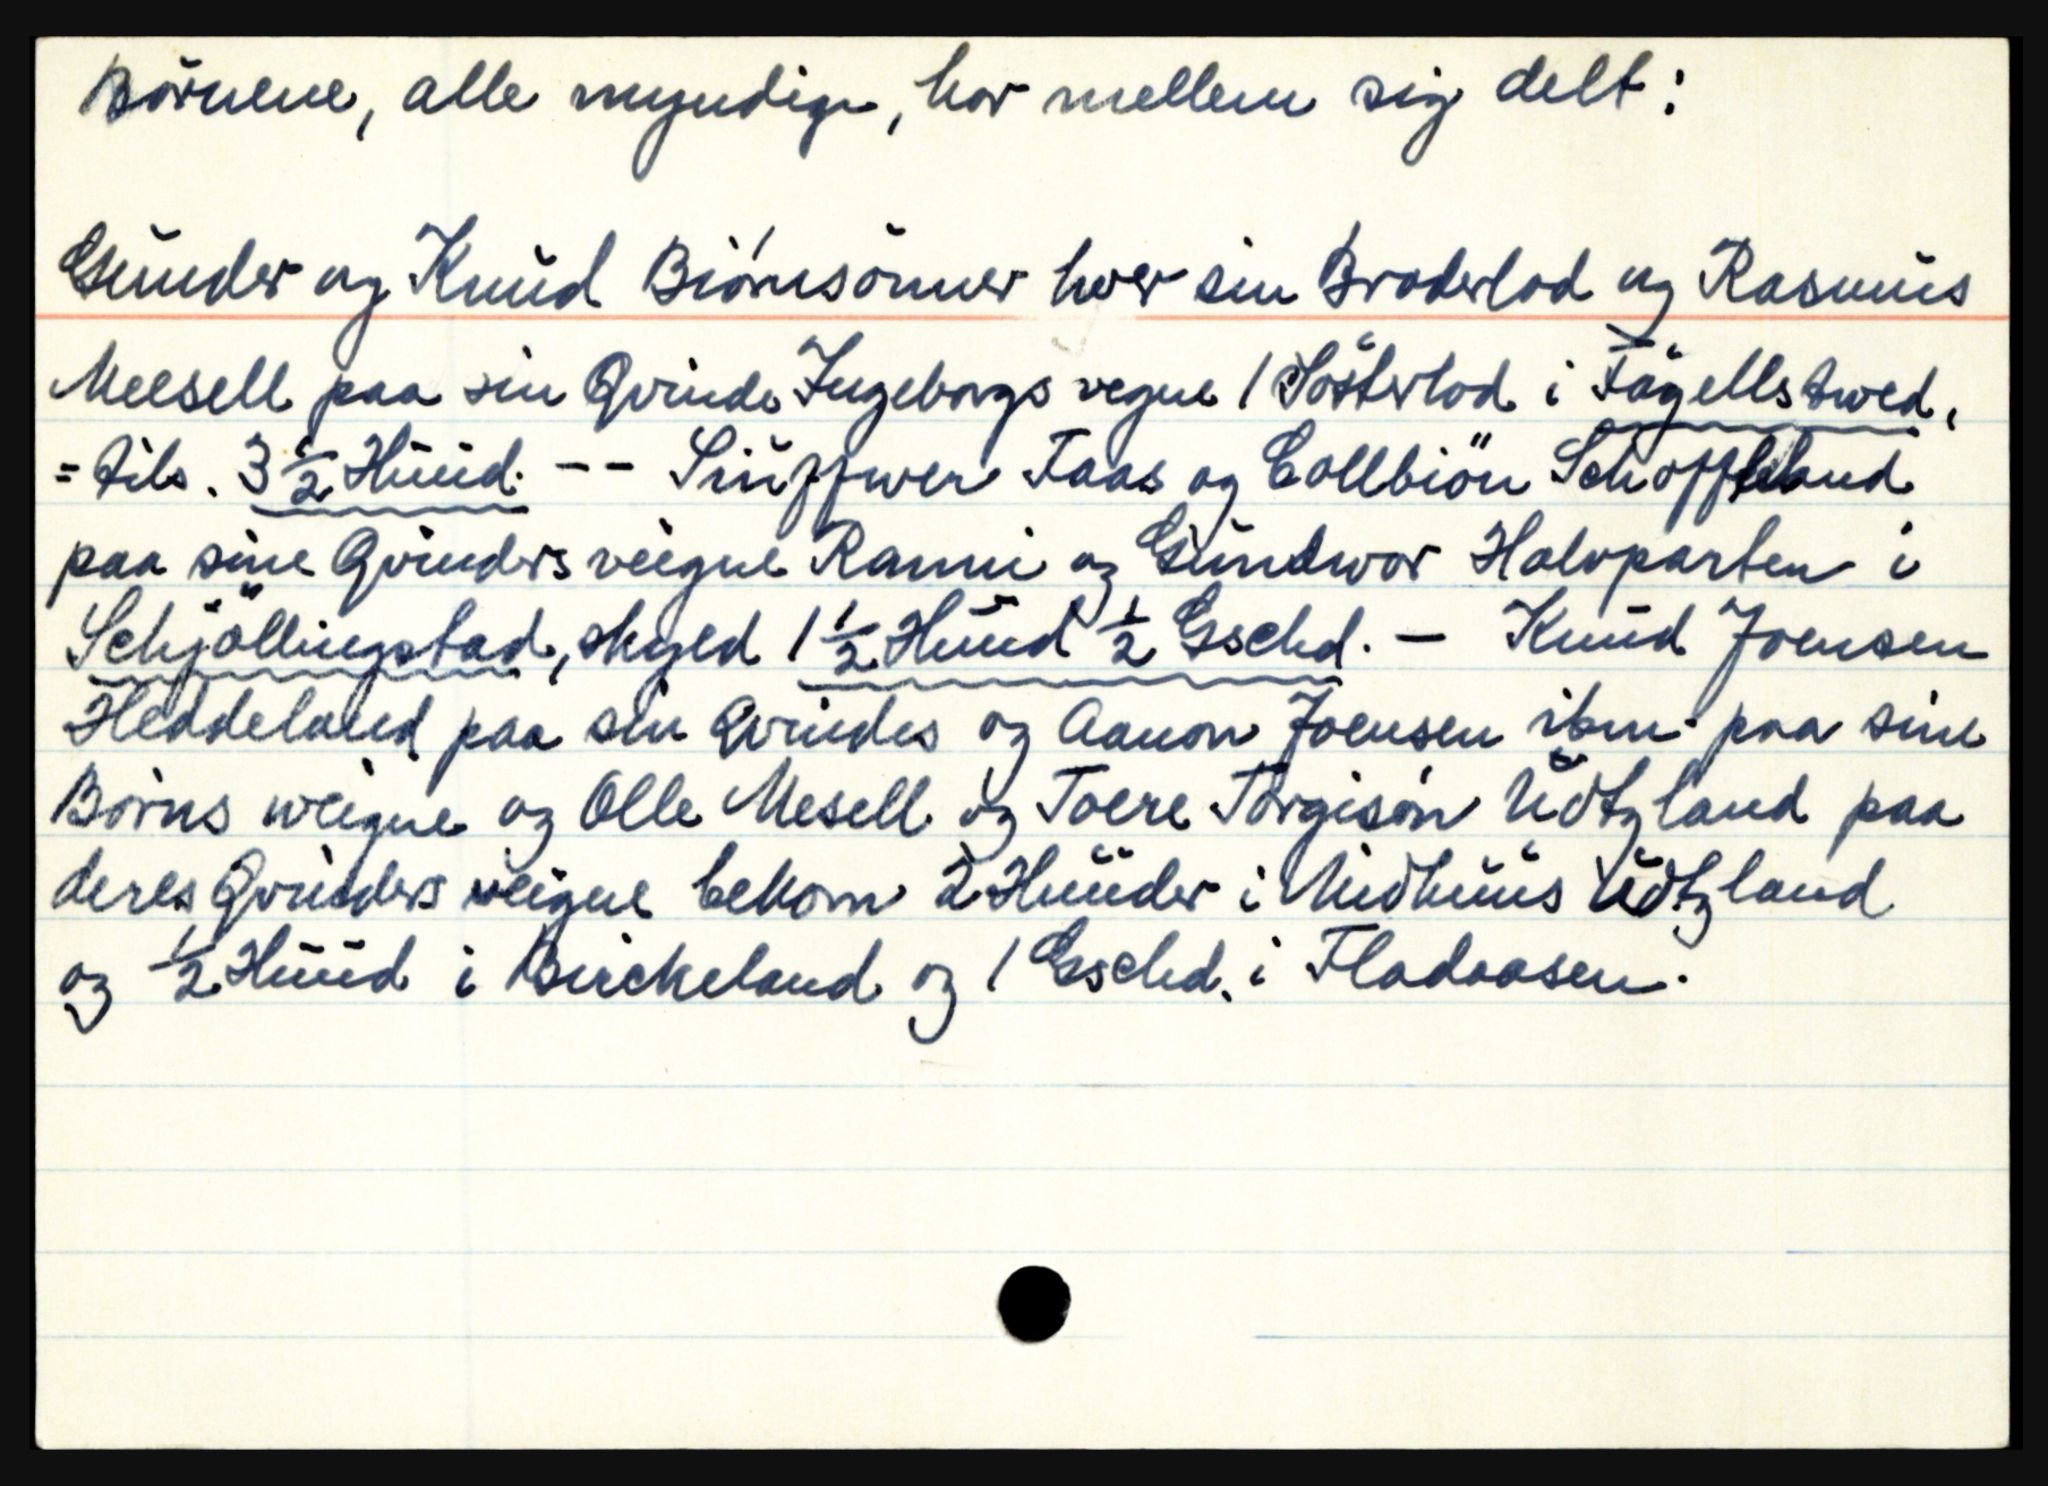 Börnene, alle myndige, har mellem sig delt:
Gunder og Knud Biórnsönner hver sin Broderlod og Rasmus
Meesell paa sin Qvinde Ingeborgs vegne 1 Sösterlod i Fägellstwed,
= tils. 3 1/2 Huud. -- Siuffwer Faas og Collbiön Schoffteland
paa sine Qvinders veigne Ranni og Gundwor Halvparten i
Schjöllingstad, skyld 1 1/2 Huud 1/2 Gschd. - Knud Joensen
Heddeland paa sin Qvindes og Aanon Joensen ibm. paa sine
Börns weigne og Olle Mesell og Toere Torgisón Udtzland paa
deres Qvinders veigne bekom 2 Huuder i Midhuus Udtzland
og 1/2 Huud i Birckeland og 1 Gschd. i Fladaasen.